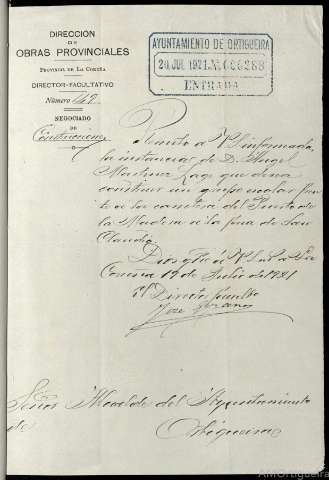 DIRECCIÓN
DE
OBRAS PROVINCIALES
PROVINCIA DE LA CORUÑA
DIRECTOR-FACULTATIVO
Número 419
NEGOCIADO
DE
Construcciones
AYUNTAMIENTO DE ORTIGUEIRA
20 JUL 1921
ENTRADA
Remito a V.S. informada
la instancia de D. Angel
Martinez que desea
construir un grupo escolar
a la carretera del Puerto de
la Madera a la feria de San
Claudio.
Dios gūe á V.S. m. a.
Coruña 19 de Julio de 1921
El Director
Señor Alcalde del Ayuntamiento
de Ortigueira
AMOrtigueira